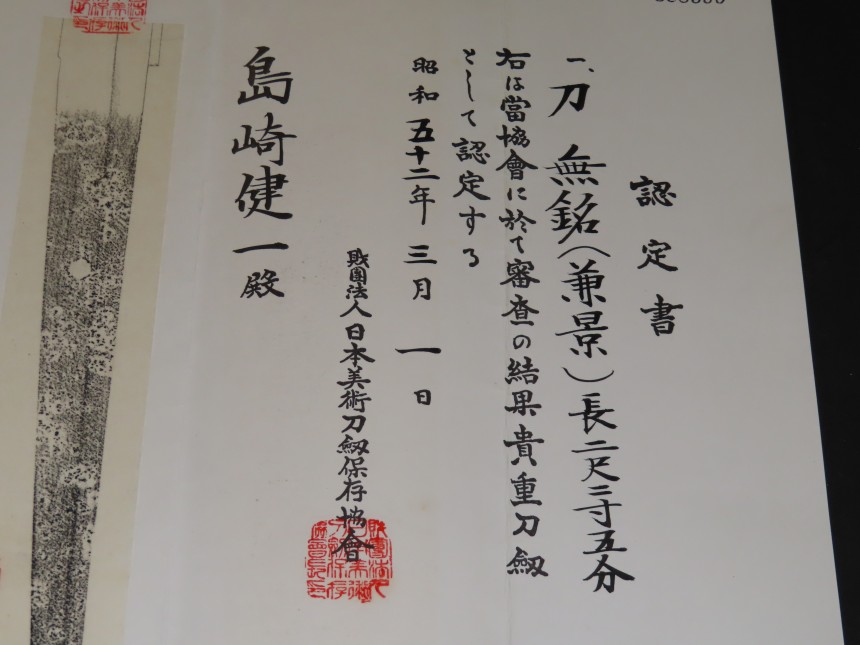 認定書
一、刀 無銘(兼景)長二尺三寸五分
右は當協會に於て審査の結果貴重刀劔
として認定する
昭和五十二年三月一日
財團法人日本美術刀劔保存協會
島崎健一殿